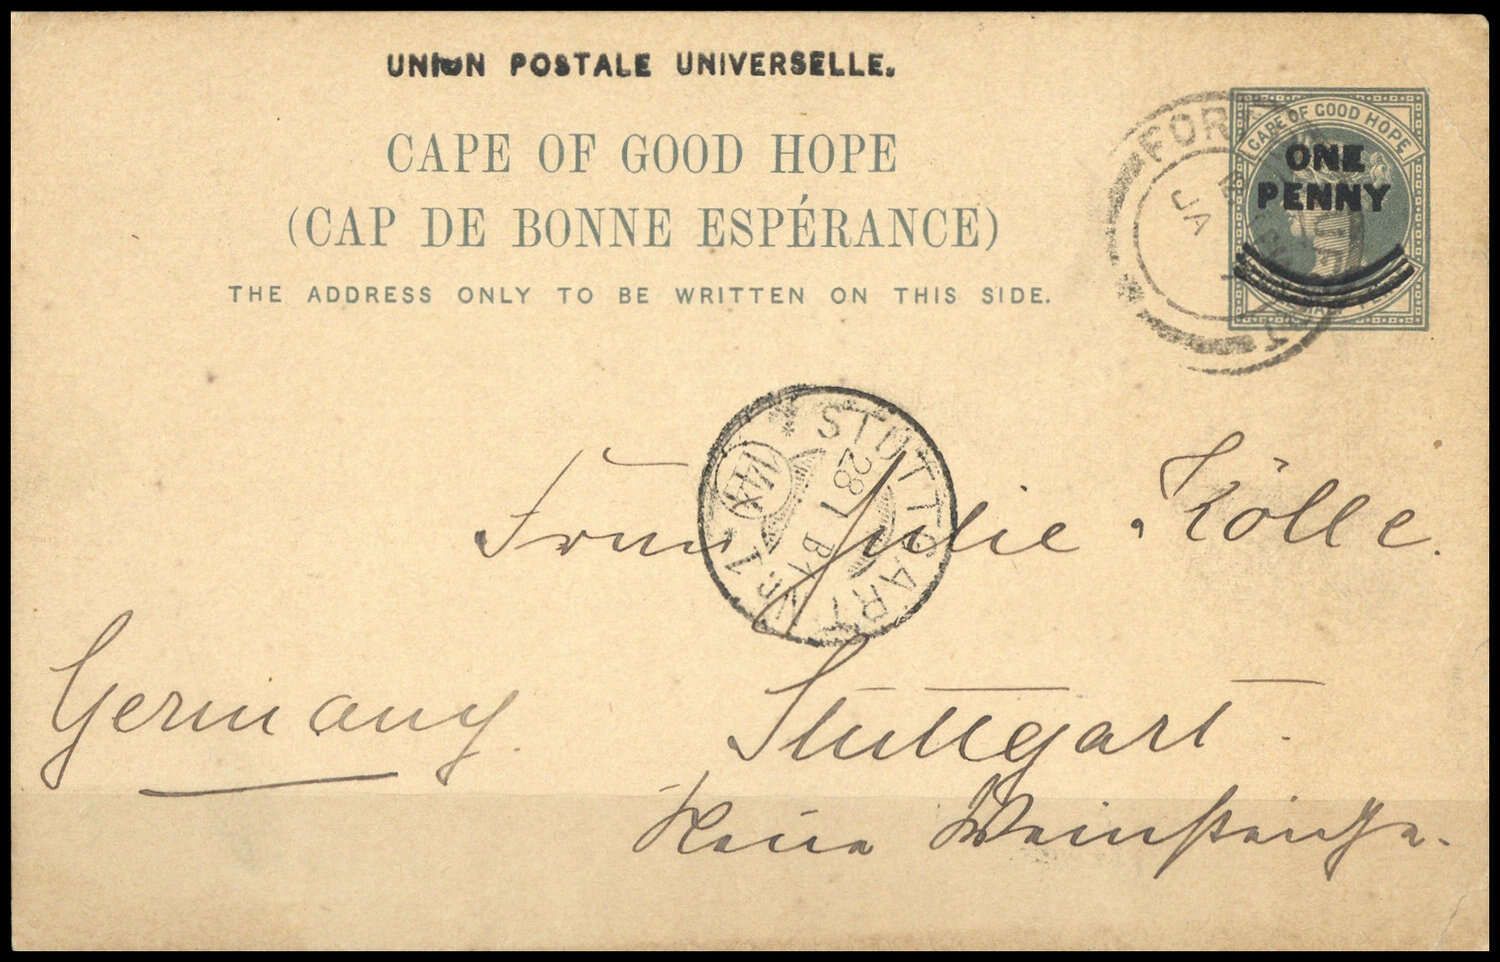 UNION POSTALE UNIVERSELLE.
CAPE OF GOOD HOPE
(CAP DE BONNE ESPÉRANCE)
THE ADDRESS ONLY TO BE WRITTEN ON THIS SIDE.
CAPE OF GOOD HOPE
ONE
PENNY
FORT
JA
STUTTGART Nº 1
28 1
Frau Julie Kölle.
Germany.
Stuttgart.